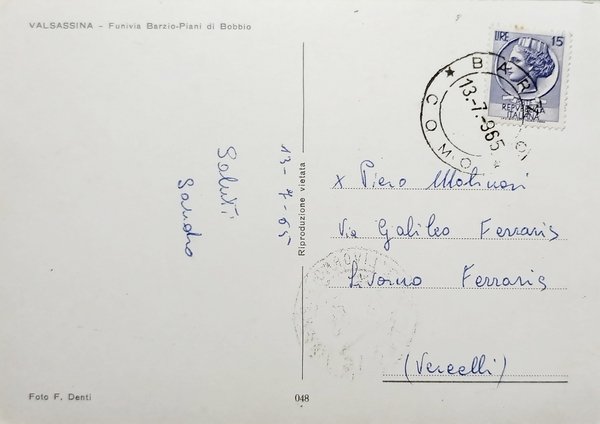 VALSASSINA - Funivia Barzio-Piani di Bobbio
LIRE 15
REPUBBLICA
ITALIANA
13-7-965
COMO
13-7-65
Saluti
Sandro
Riproduzione vietata
x Piero Molinari
Via Galileo Ferraris
Livorno Ferraris
(Vercelli)
Foto F. Denti
048